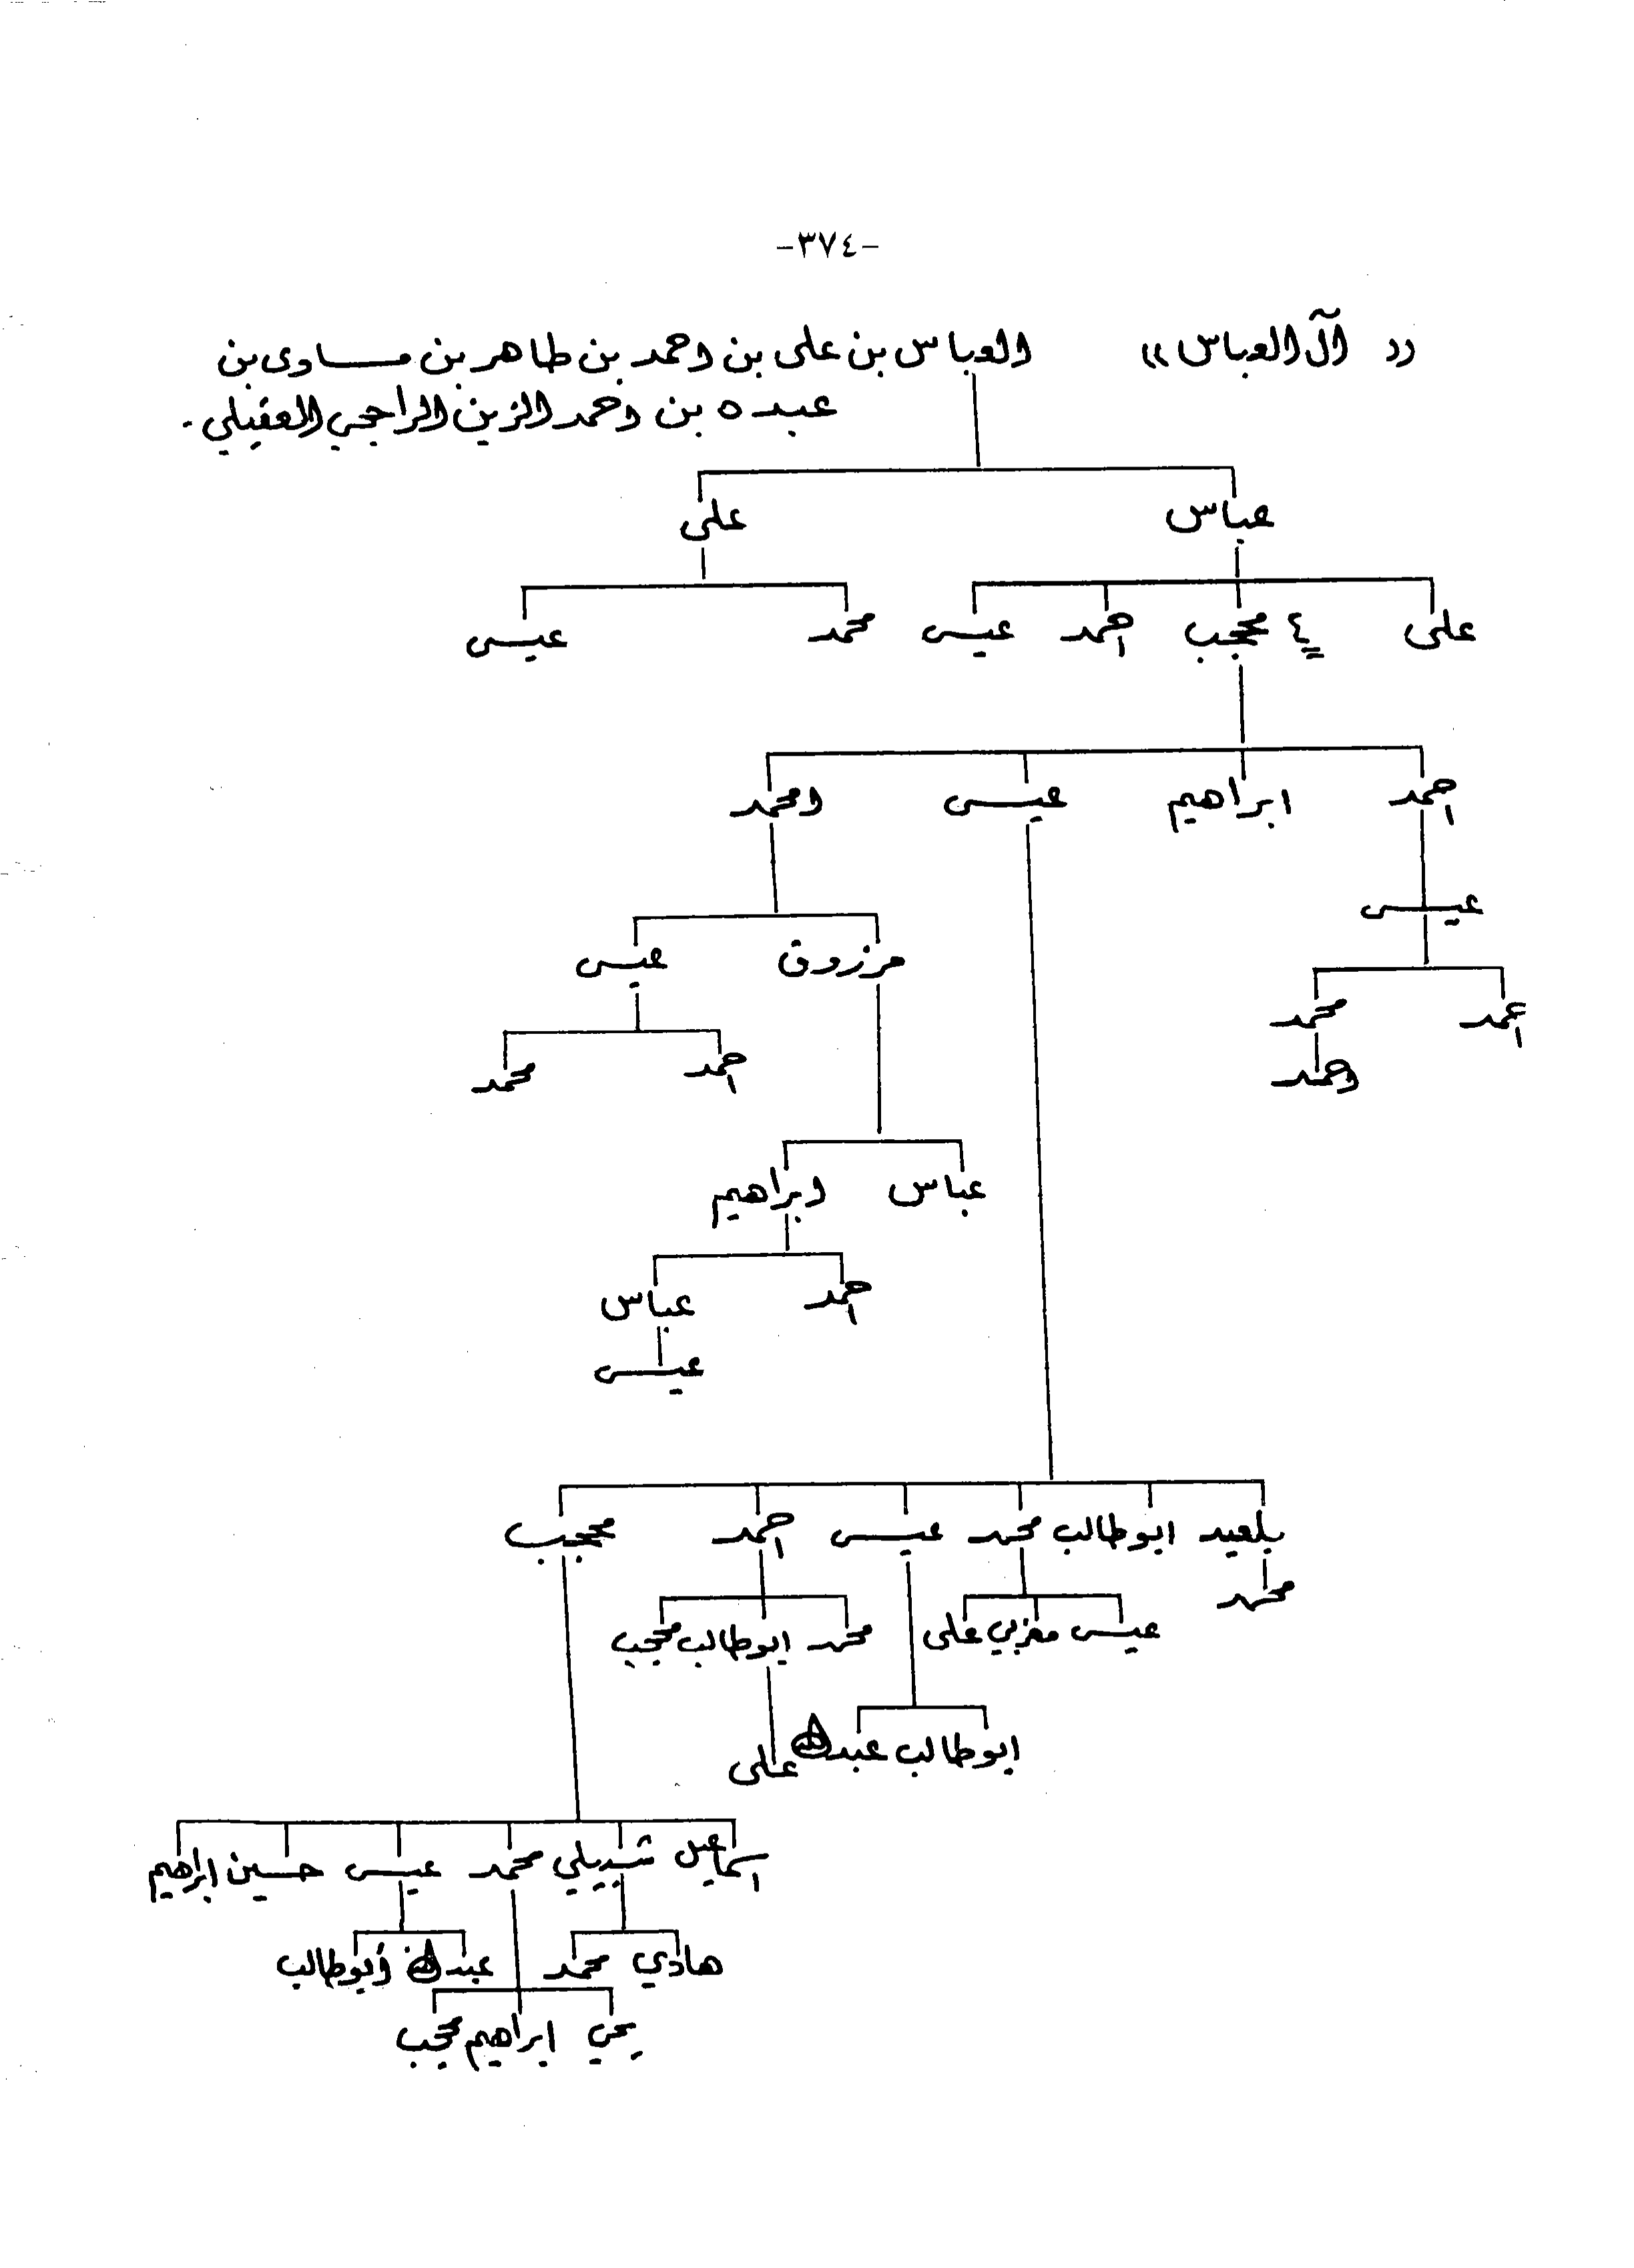 -٣٧٤-
(( آل العباس )) العباس بن على بن احمد بن طاهر بن مساوى بن
عبده بن احمد الزين الراجحي العقيلي .
عباس على
على ٤ محجب احمد عيسى محمد عيسى
احمد ابراهيم عيسى امحمد
عيسى
مرزوق عيسى
احمد محمد
احمد محمد
احمد
عباس ابراهيم
احمد عباس
عيسى
بلعيد ابوطالب محمد عيسى احمد محجب
محمد
عيسى مغربي على محمد ابوطالب محجب
ابوطالب عبدالله على
اسماعيل شبيلي محمد عيسى حسين ابراهيم
هادي محمد عبدالله أبوطالب
يحي ابراهيم محجب